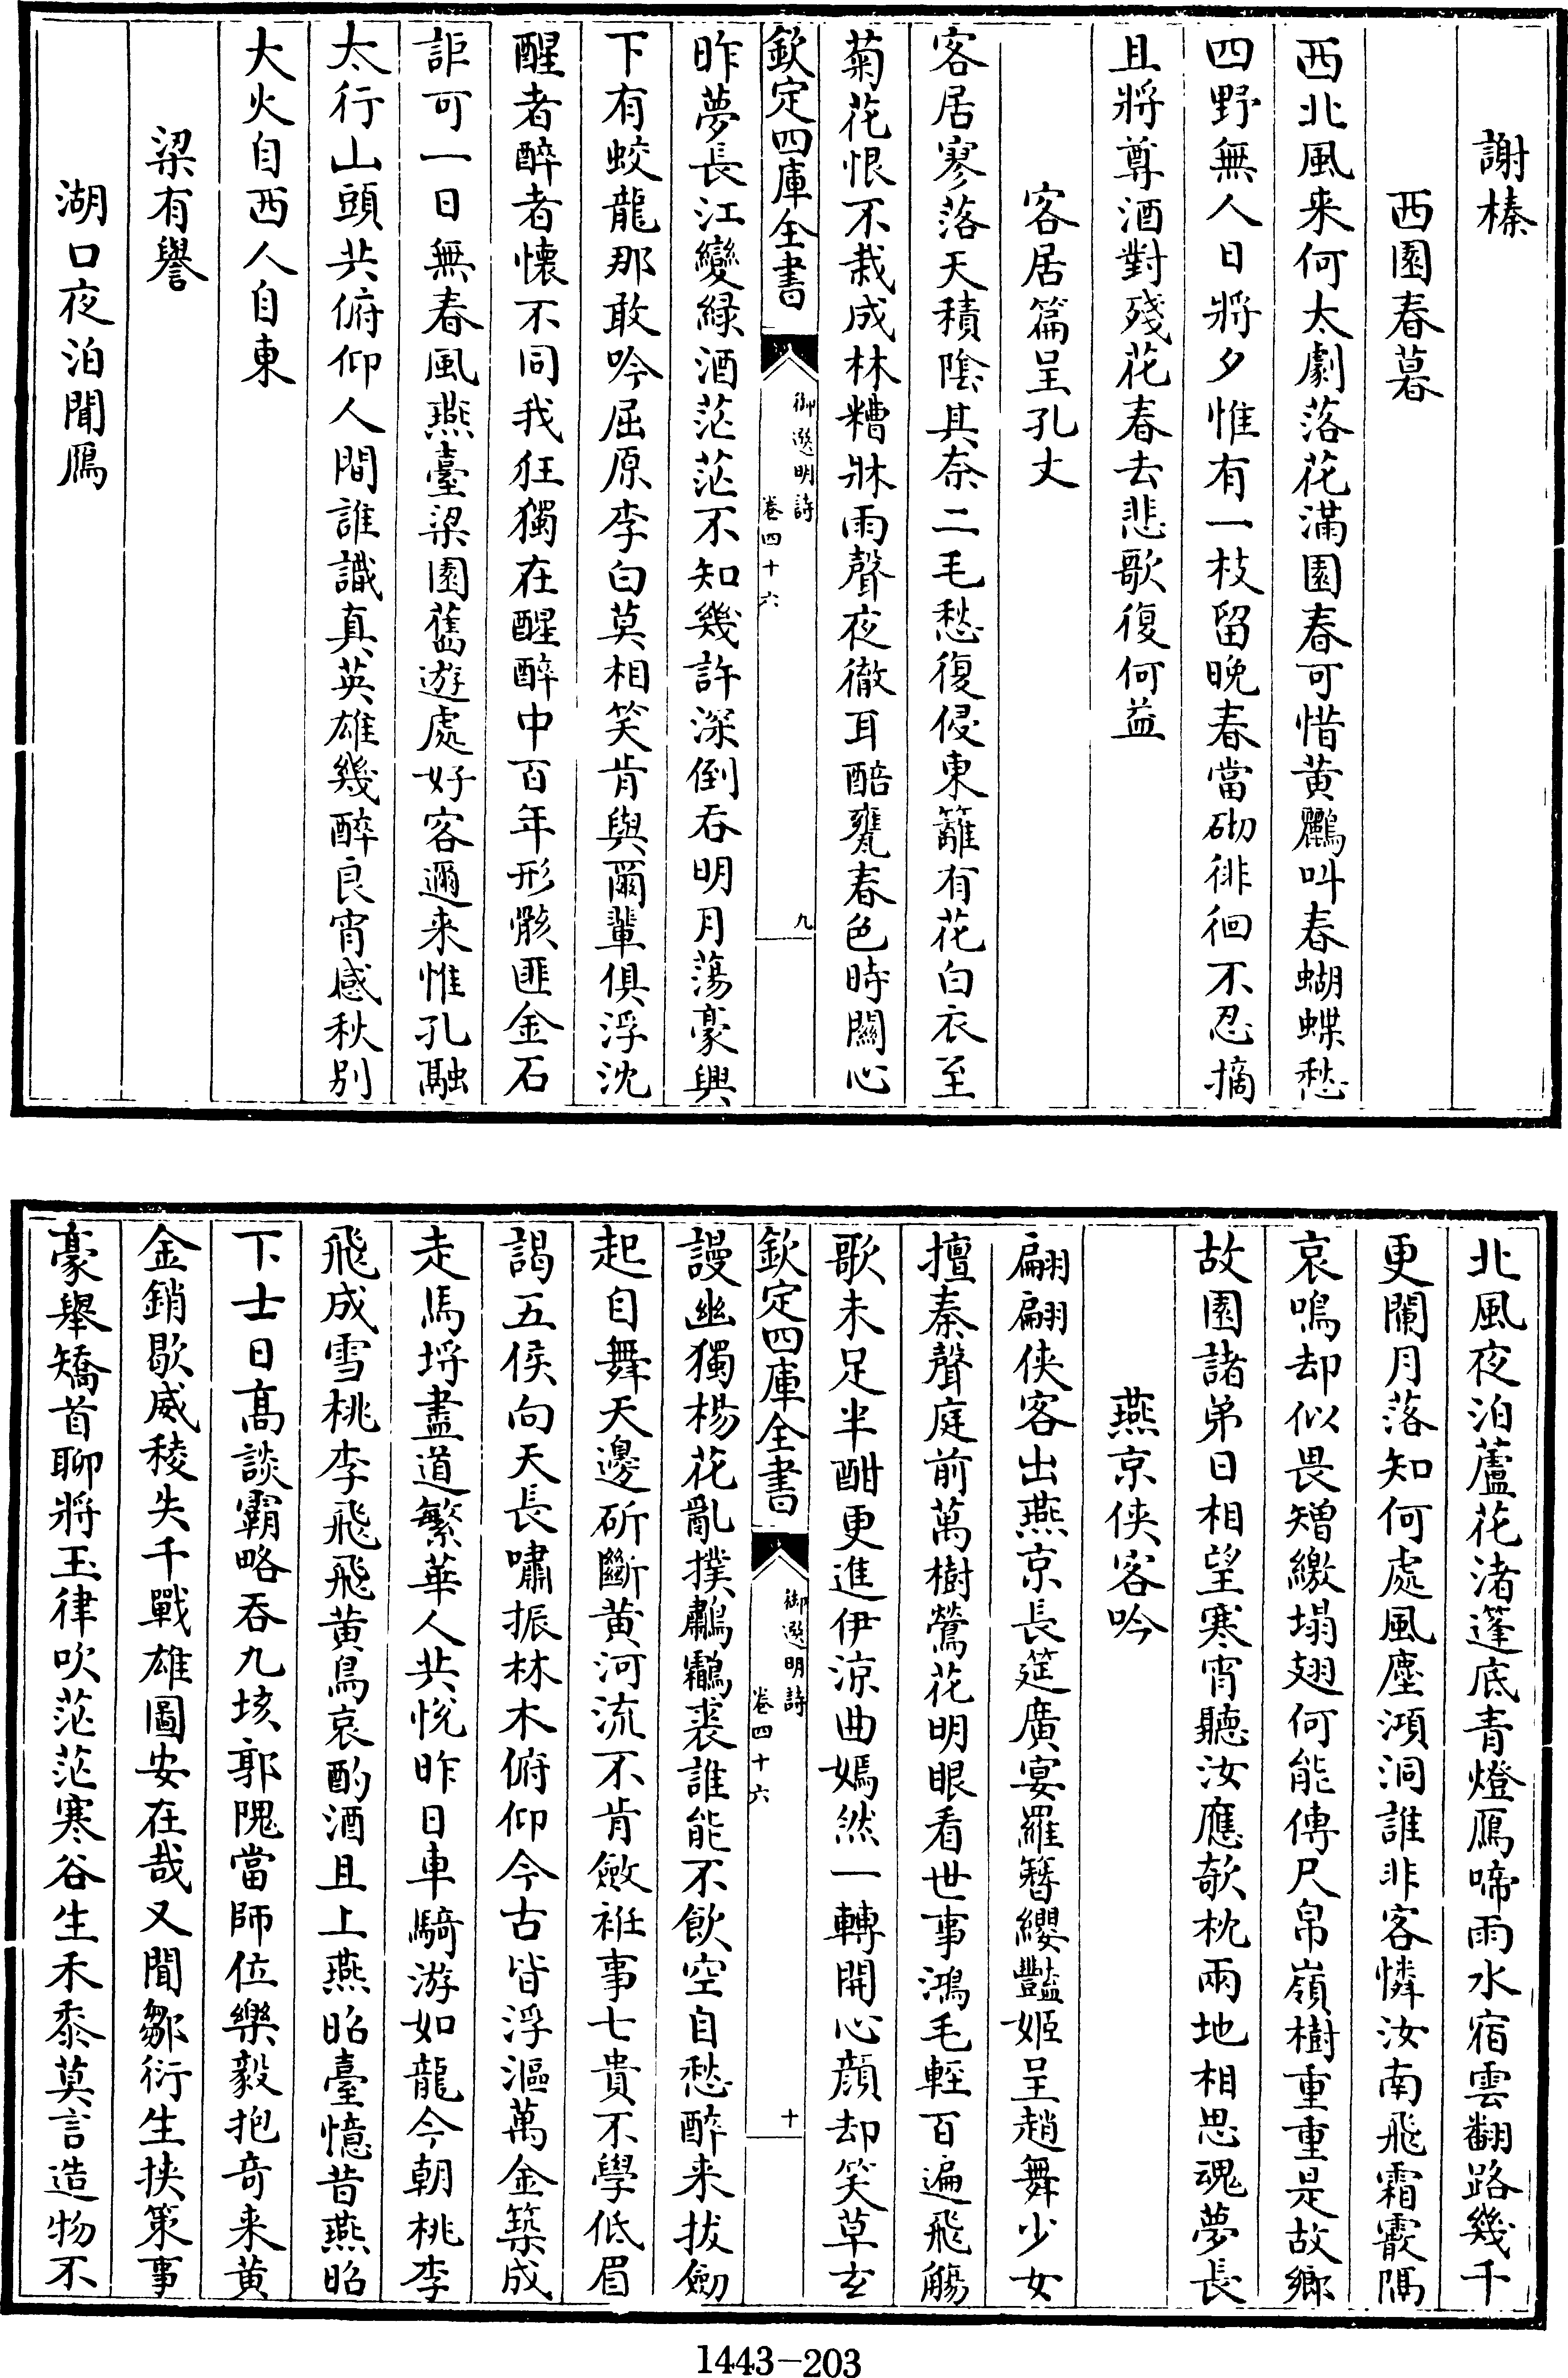 謝榛
西園春暮
西北風来何太劇落花滿園春可惜黄鸝叫春蝴蝶愁
四野無人日將夕惟有一枝留晚春當砌徘徊不忍摘
且將尊酒對殘花春去悲歌復何益
客居篇呈孔丈
客居寥落天積陰其奈二毛愁復侵東籬有花白衣至
菊花恨不栽成林糟牀雨聲夜徹耳醅甕春色時關心
欽定四庫全書
御選明詩
卷四十六
九
昨夢長江變緑酒茫茫不知幾許深倒吞明月蕩豪興
下有蛟龍那敢吟屈原李白莫相笑肯與爾輩俱浮沈
醒者醉者懐不同我狂獨在醒醉中百年形骸匪金石
詎可一日無春風燕臺梁園舊遊處好客邇来惟孔融
太行山頭共俯仰人間誰識真英雄幾醉良宵感秋别
大火自西人自東
梁有譽
湖口夜泊聞鴈
北風夜泊蘆花渚篷底青燈鴈啼雨水宿雲翻路幾千
更闌月落知何處風塵澒洞誰非客憐汝南飛霜霰隔
哀鳴却似畏矰繳塌翅何能傳尺帛嶺樹重重是故鄉
故園諸弟日相望寒宵聽汝應欹枕兩地相思魂夢長
燕京俠客吟
翩翩俠客出燕京長筵廣宴羅簪纓豔姬呈趙舞少女
擅秦聲庭前萬樹鶯花明眼看世事鴻毛輕百遍飛觴
歌未足半酣更進伊涼曲嫣然一轉開心顔却笑草玄
欽定四庫全書
御選明詩
卷四十六
十
謾幽獨楊花亂撲鷫鸘裘誰能不飲空自愁醉来拔劒
起自舞天邊斫斷黄河流不肯斂袵事七貴不學低眉
謁五侯向天長嘯振林木俯仰今古皆浮漚萬金築成
走馬埒盡道繁華人共悅昨日車騎游如龍今朝桃李
飛成雪桃李飛飛黄鳥哀酌酒且上燕昭臺憶昔燕昭
下士日髙談霸略吞九垓郭隗當師位樂毅抱竒来黄
金銷歇威稜失千戰雄圖安在哉又聞鄒衍生挾策事
豪舉矯首聊將玉律吹茫茫寒谷生禾黍莫言造物不
1443-203